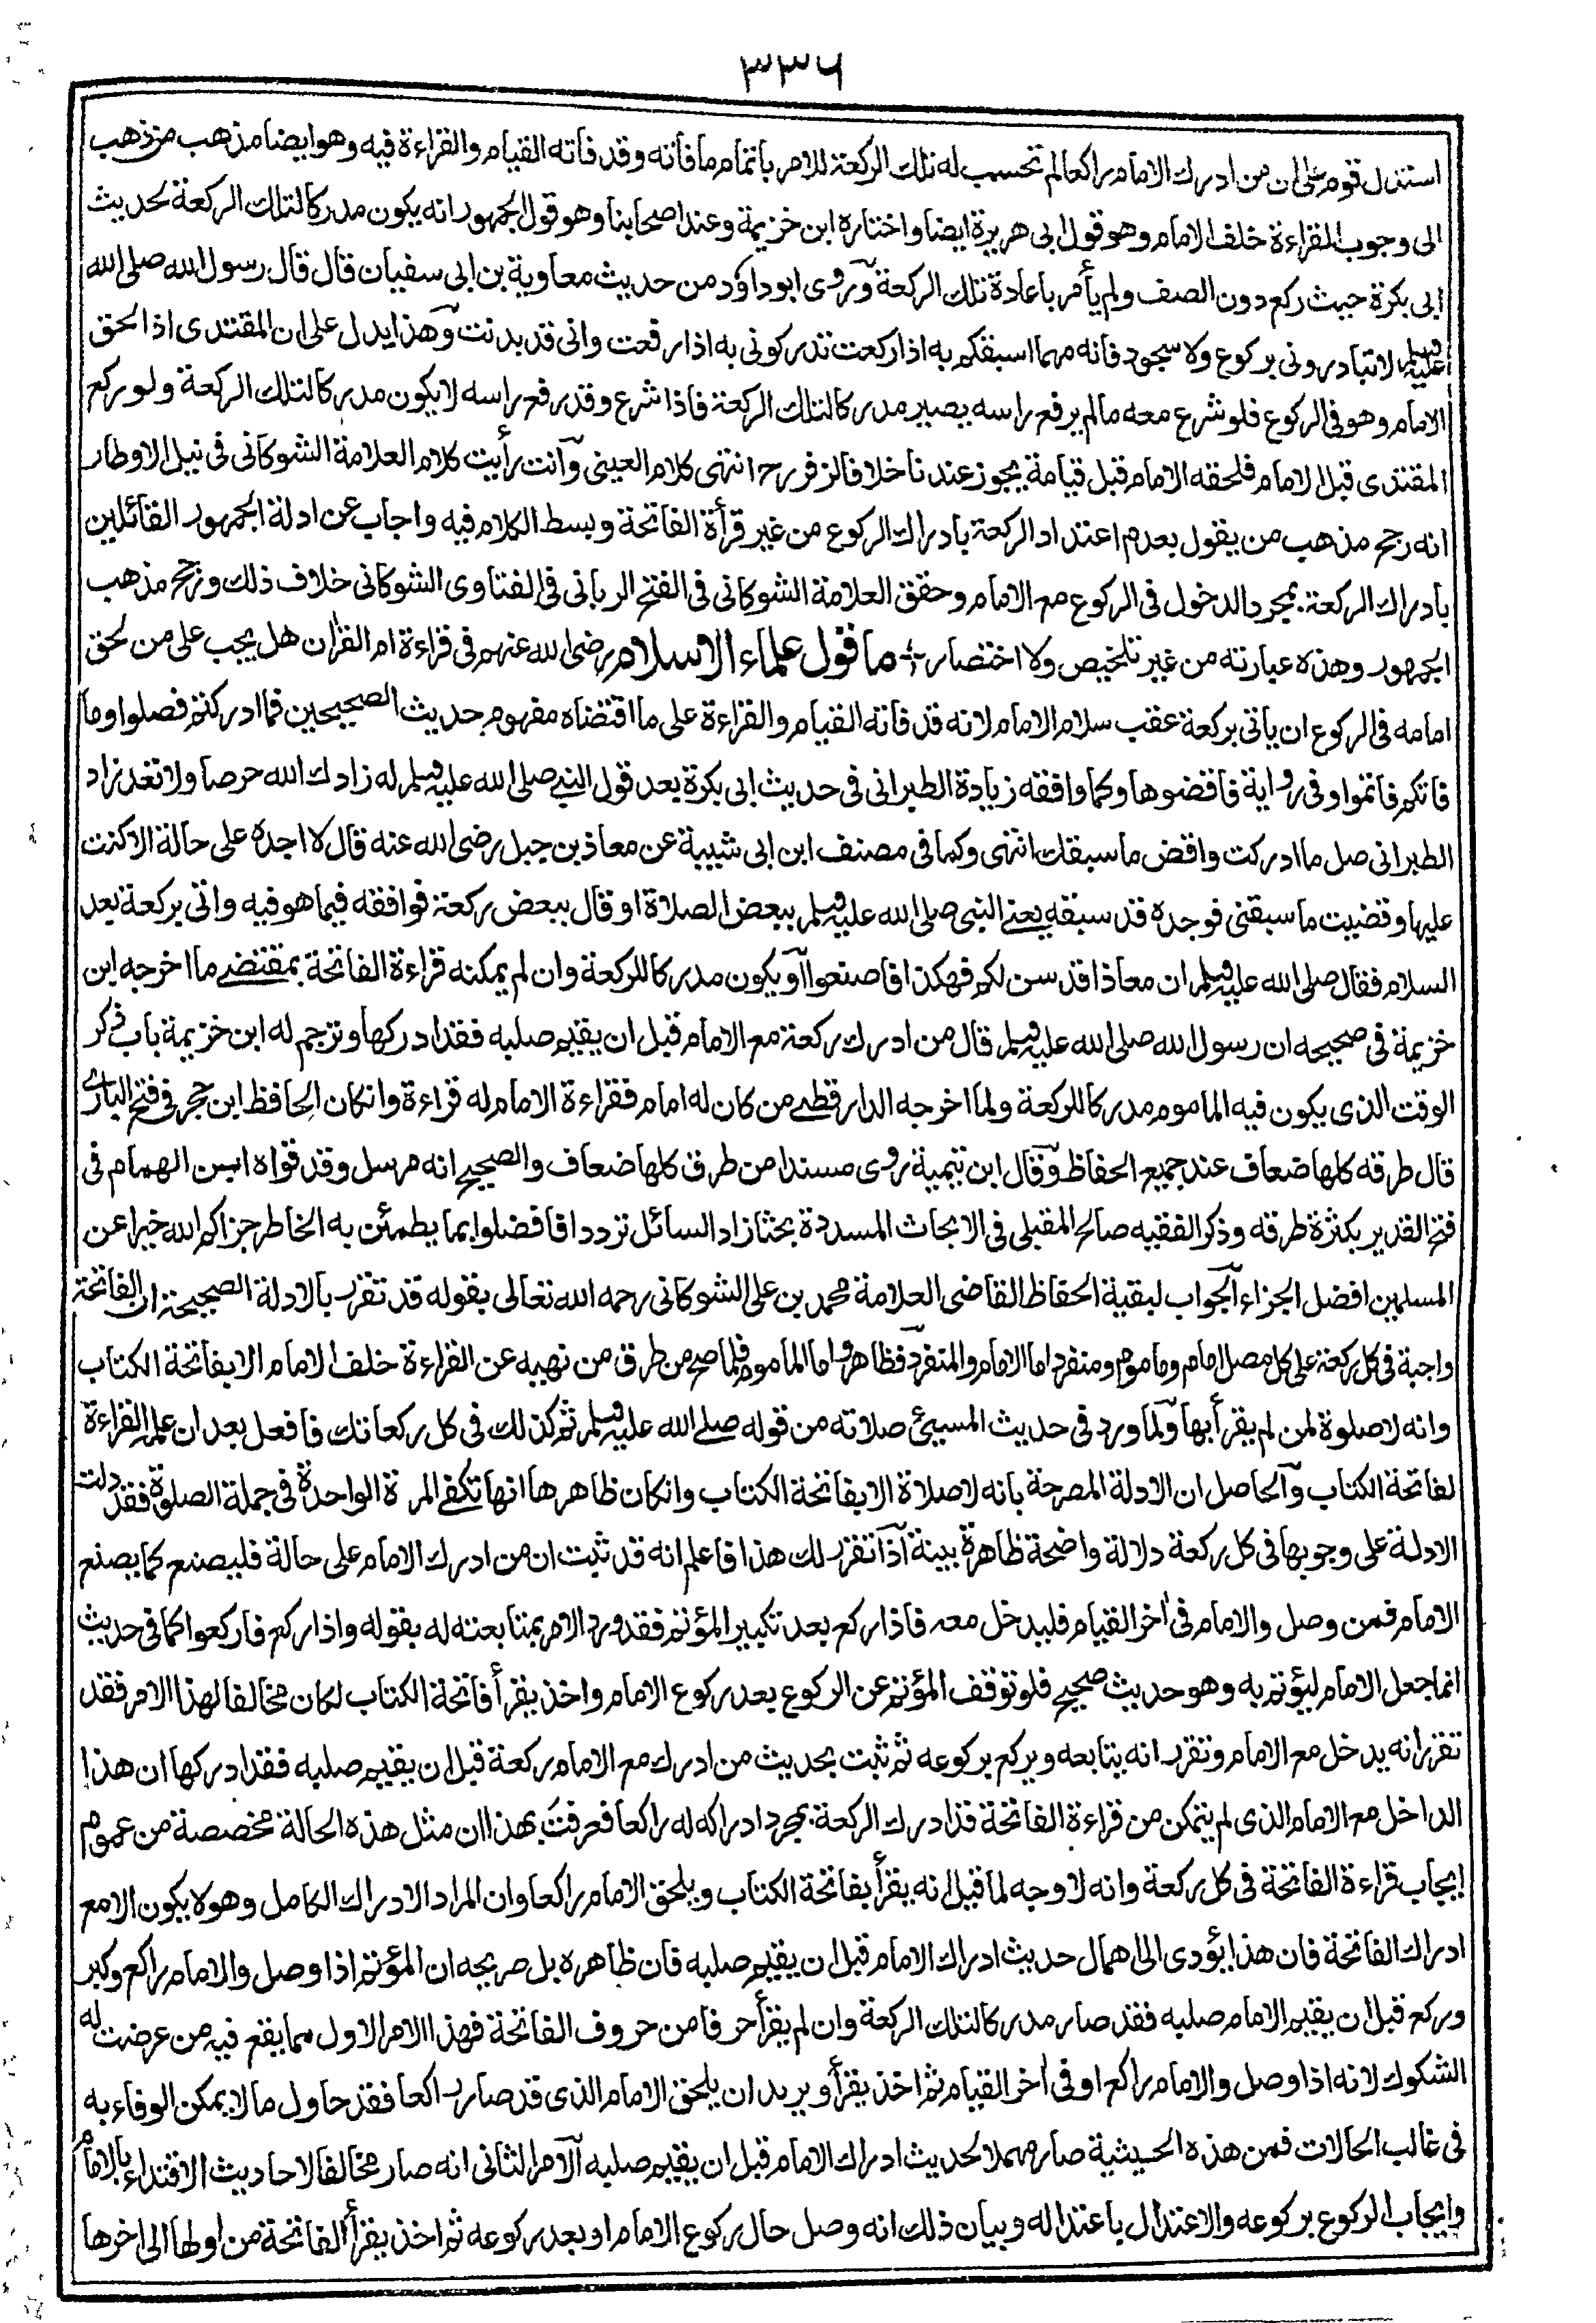 ۳۳۶
استدل قوم على ان من ادرك الامام راكعا لم تحسب له تلك الركعة للامر باتمام ما فاته وقد فاته القيام والقراءة فيه وهو ايضا مذهب من ذهب
الى وجوب القراءة خلف الامام وهو قول ابى هريرة ايضا واختاره ابن خزيمة وعند اصحابنا وهو قول الجمهور انه يكون مدركا لتلك الركعة لحديث
ابى بكرة حيث ركع دون الصف ولم يأمر باعادة تلك الركعة وروى ابو داؤد من حديث معاوية بن ابى سفيان قال قال رسول الله صلى الله
عليه وسلم لا تبادرونى بركوع ولا سجود فانه مهما اسبقكم به اذا ركعت تدركونى به اذا رفعت وانى قد بدنت وهذا يدل على ان المقتدى اذا لحق
الامام وهو فى الركوع فلو شرع معه ما لم يرفع راسه يصير مدركا لتلك الركعة فاذا شرع وقد رفع راسه لا يكون مدركا لتلك الركعة ولو ركع
المقتدى قبل الامام فلحقه الامام قبل قيامة يجوز عندنا خلافا لزفر رح انتهى كلام العينى وانت رأيت كلام العلامة الشوكانى فى نيل الاوطار
انه رجح مذهب من يقول بعدم اعتداد الركعة بادراك الركوع من غير قرأة الفاتحة وبسط الكلام فيه واجاب عن ادلة الجمهور القائلين
بادراك الركعة بمجرد الدخول فى الركوع مع الامام وحقق العلامة الشوكانى فى الفتح الربانى فى الفتاوى الشوكانى خلاف ذلك ورجح مذهب
الجمهور وهذه عبارته من غير تلخيص ولا اختصار ما قول علماء الاسلام رضى الله عنهم فى قراءة ام القران هل يجب على من لحق
امامه فى الركوع ان ياتى بركعة عقب سلام الامام لانه قد فاته القيام والقراءة على ما اقتضاه مفهوم حديث الصحيحين فما ادركتم فصلوا وما
فاتكم فاتموا وفى رواية فاقضوها وكما وافقه زيادة الطبرانى فى حديث ابى بكرة بعد قول النبى صلى الله عليه وسلم له زادك الله حرصا ولا تعد زاد
الطبرانى صل ما ادركت واقض ما سبقك انتهى وكما فى مصنف ابن ابى شيبة عن معاذ بن جبل رضى الله عنه قال لا اجده على حالة الا كنت
عليها وقضيت ما سبقنى فوجده قد سبقه يعنى النبى صلى الله عليه وسلم ببعض الصلاة او قال ببعض ركعة فوافقه فيما هو فيه واتى بركعة بعد
السلام فقال صلى الله عليه وسلم ان معاذا قد سن لكم فهكذا فاصنعوا او يكون مدركا للركعة وان لم يمكنه قراءة الفاتحة بمقتضى ما اخرجه ابن
خزيمة فى صحيحه ان رسول الله صلى الله عليه وسلم قال من ادرك ركعة مع الامام قبل ان يقيم صلبه فقد ادركها وترجم له ابن خزيمة باب ذكر
الوقت الذى يكون فيه الماموم مدركا للركعة ولما اخرجه الدارقطنى من كان له امام فقراءة الامام له قراءة وان كان الحافظ ابن حجر فى فتح البارى
قال طرقه كلها ضعاف عند جميع الحفاظ وقال ابن تيمية روى مسندا من طرق كلها ضعاف والصحيح انه مرسل وقد قواه ابن الهمام فى
فتح القدير بكثرة طرقه وذكر الفقيه صالح المقبلى فى الابحاث المسددة بحثا زاد السائل ترددا فافضلوا بما يطمئن به الخاطر جزاكم الله خيرا عن
المسلمين افضل الجزاء الجواب لبقية الحفاظ القاضى العلامة محمد بن على الشوكانى رحمه الله تعالى بقوله قد تقرر بالادلة الصحيحة ان الفاتحة
واجبة فى كل ركعة على كل مصل امام وماموم ومنفرد اما الامام والمنفرد فظاهر واما الماموم فلما صح من طرق من نهيه عن القراءة خلف الامام الا بفاتحة الكتاب
وانه لا صلوة لمن لم يقرأ بها ولما ورد فى حديث المسيئ صلاته من قوله صلى الله عليه وسلم ثم كذلك فى كل ركعاتك فافعل بعد ان علمه القراءة
لفاتحة الكتاب والحاصل ان الادلة المصرحة بانه لا صلاة الا بفاتحة الكتاب وان كان ظاهرها انها تكفى المرة الواحدة فى جملة الصلوة فقد دلت
الادلة على وجوبها فى كل ركعة دلالة واضحة ظاهرة بينة اذا تقرر لك هذا فاعلم انه قد ثبت ان من ادرك الامام على حالة فليصنع كما يصنع
الامام فمن وصل والامام فى اخر القيام فليدخل معه فاذا ركع بعد تكبير المؤتم فقد ورد الامر بمتابعته له بقوله واذا ركع فاركعوا كما فى حديث
انما جعل الامام ليؤتم به وهو حديث صحيح فلو توقف المؤتم عن الركوع بعد ركوع الامام واخذ يقرأ فاتحة الكتاب لكان مخالفا لهذا الامر فقد
تقرر انه يدخل مع الامام وتقرر انه يتابعه ويركع بركوعه ثم ثبت بحديث من ادرك مع الامام ركعة قبل ان يقيم صلبه فقد ادركها ان هذا
الداخل مع الامام الذى لم يتمكن من قراءة الفاتحة قد ادرك الركعة بمجرد ادراكه له راكعا فعرفت بهذا ان مثل هذه الحالة مخصصة من عموم
ايجاب قراءة الفاتحة فى كل ركعة وانه لا وجه لما قيل انه يقرأ بفاتحة الكتاب ويلحق الامام راكعا وان المراد الادراك الكامل وهو لا يكون الا مع
ادراك الفاتحة فان هذا يؤدى الى اهمال حديث ادراك الامام قبل ان يقيم صلبه فان ظاهره بل صريحه ان المؤتم اذا وصل والامام راكع وكبر
وركع قبل ان يقيم الامام صلبه فقد صار مدركا لتلك الركعة وان لم يقرأ حرفا من حروف الفاتحة فهذا الامر الاول مما يقع فيه من عرضت له
الشكوك لانه اذا وصل والامام راكع او فى اخر القيام ثم اخذ يقرأ ويريد ان يلحق الامام الذى قد صار راكعا فقد حاول ما لا يمكن الوفاء به
فى غالب الحالات فمن هذه الحيثية صار مهملا لحديث ادراك الامام قبل ان يقيم صلبه الامر الثانى انه صار مخالفا لاحاديث الاقتداء بالامام
وايجاب الركوع بركوعه والاعتدال باعتداله وبيان ذلك انه وصل حال ركوع الامام او بعد ركوعه ثم اخذ يقرأ الفاتحة من اولها الى اخرها